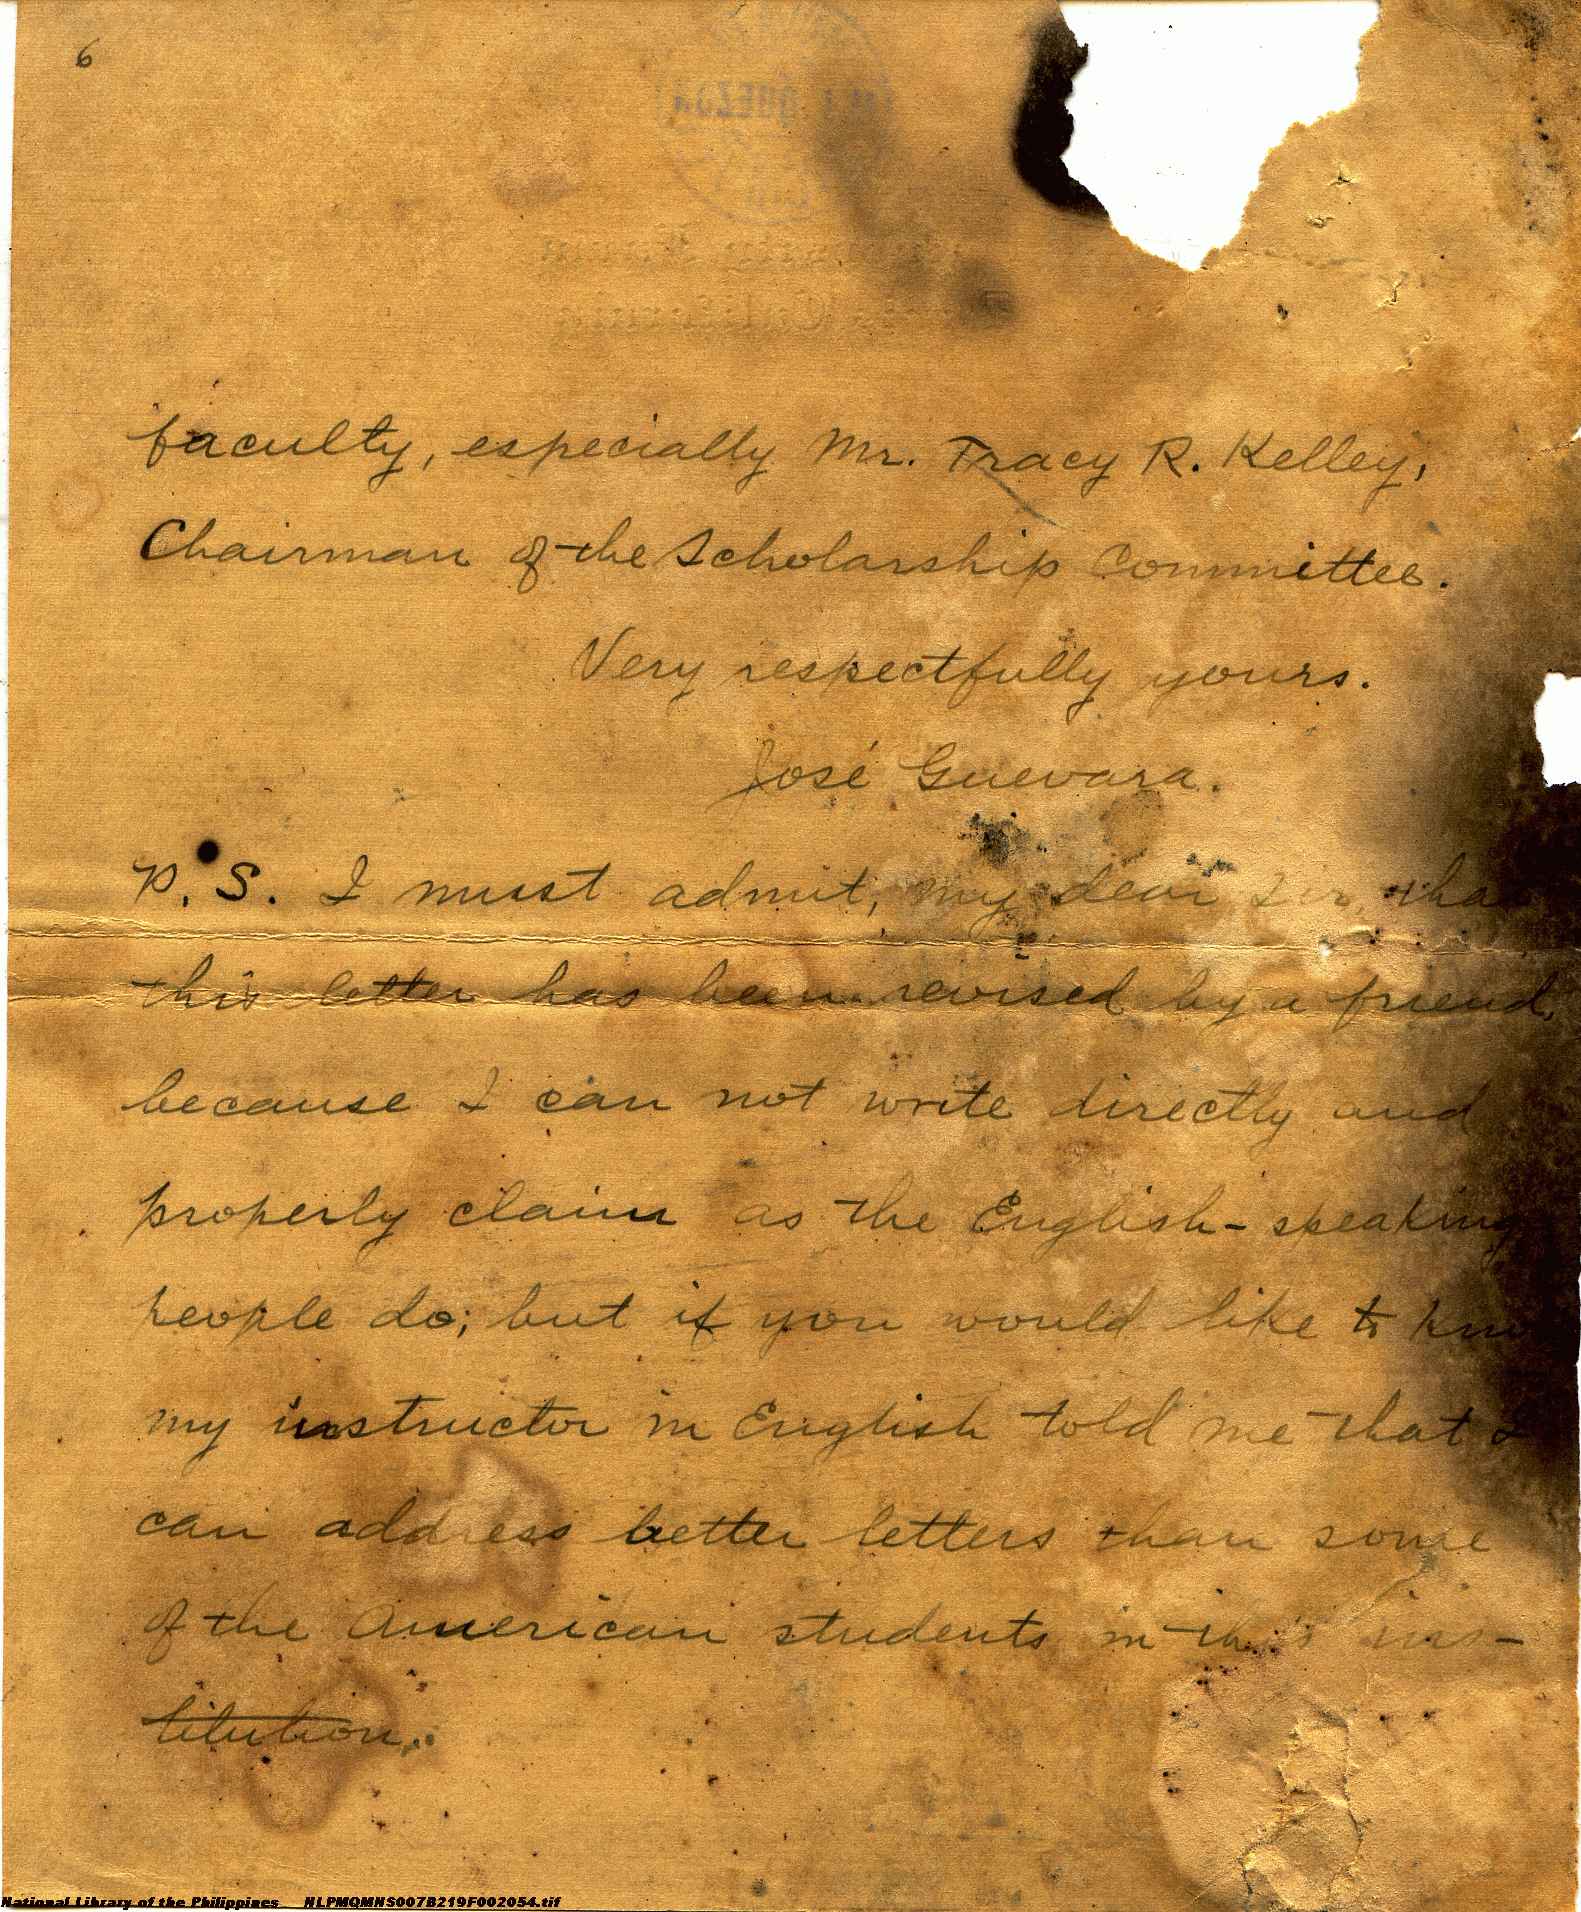 6
faculty, especially Mr. Tracy R. Kelley,
Chairman of the Scholarship Committee.
Very respectfully yours.
José Guevara.
P. S. I must admit, my dear Sir, tha
this letter has been revised by a friend,
because I can not write directly and
properly claim as the English-speaking
people do; but if you would like to kno
my instructor in English told me that I
can address better letters than some
of the American students in this ins-
titution.
National Library of the Philippines NLPMQMNS007B219F002054.tif